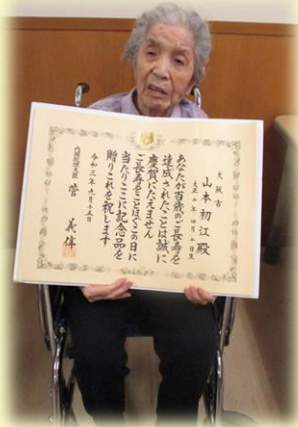 大阪市
山本初江殿
大正十年四月十日生
あなたが百歳のご長寿を
達成されたことは誠に
慶賀にたえません
ご長寿をことほぐこの日に
当たりここに記念品を
贈りこれを祝します
令和三年九月十五日
内閣総理大臣 菅 義偉